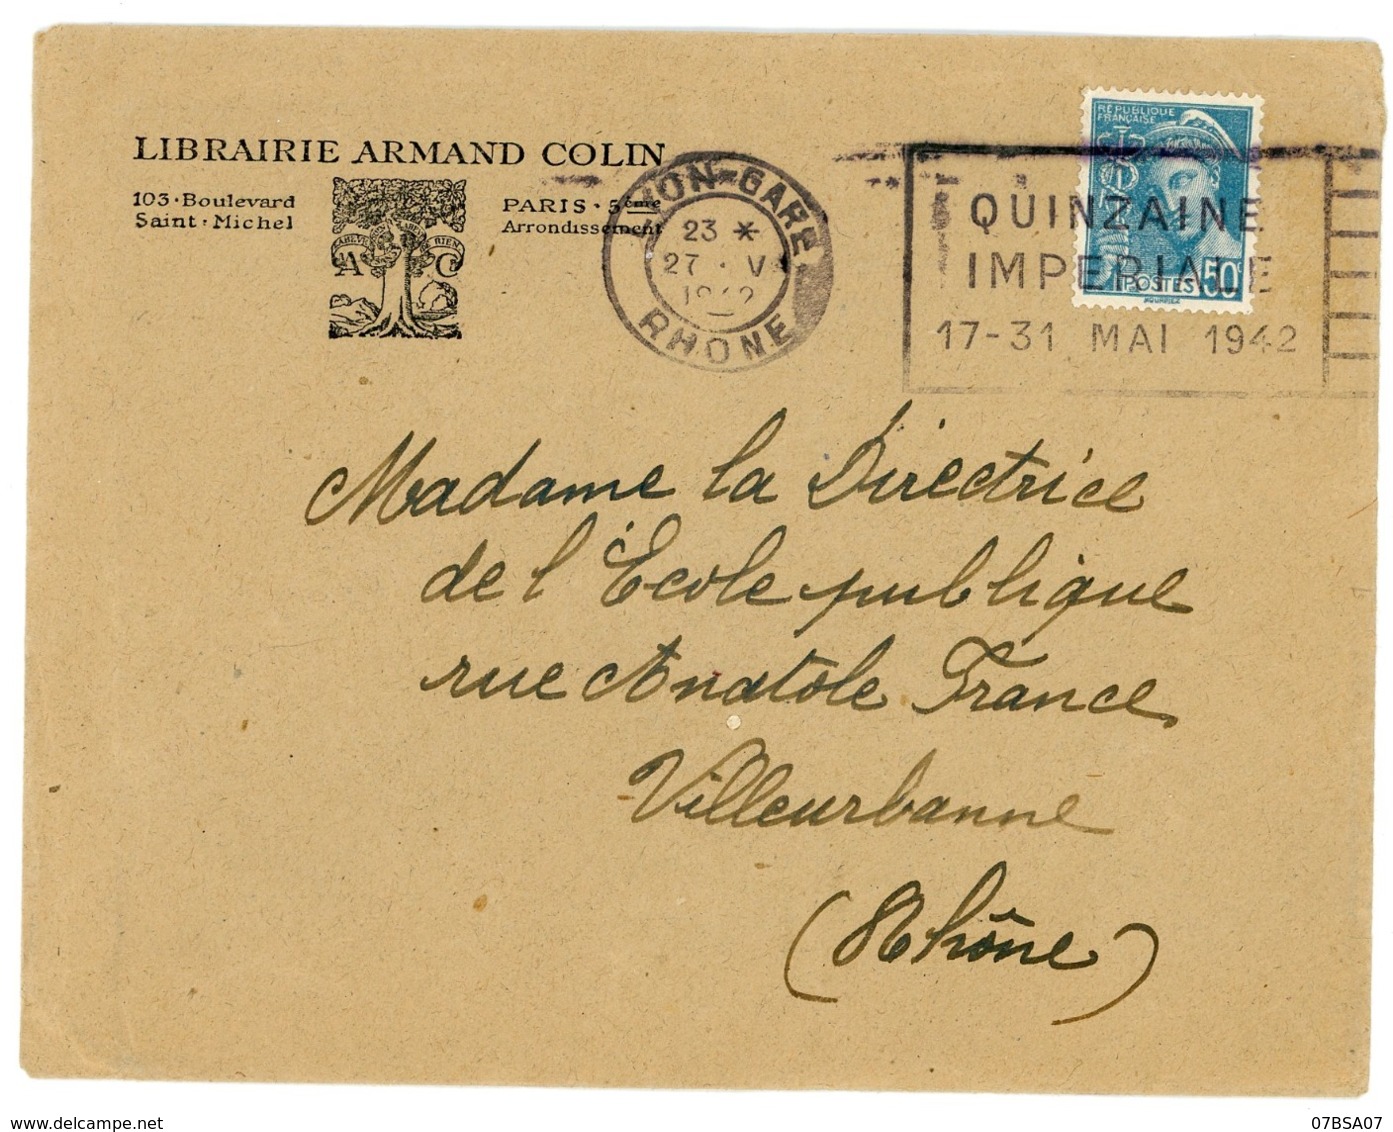 LIBRAIRIE ARMAND COLIN
103 · Boulevard
Saint · Michel
PARIS · 5ème
Arrondissement
A C
LYON-GARE
23 *
27 · V
1942
RHONE
REPUBLIQUE
FRANÇAISE
POSTES 50c
QUINZAINE
IMPERIALE
17-31 MAI 1942
Madame la Directrice
de l'École publique
rue Anatôle France
Villeurbanne
(Rhône)
www.delcampe.net
07BSA07